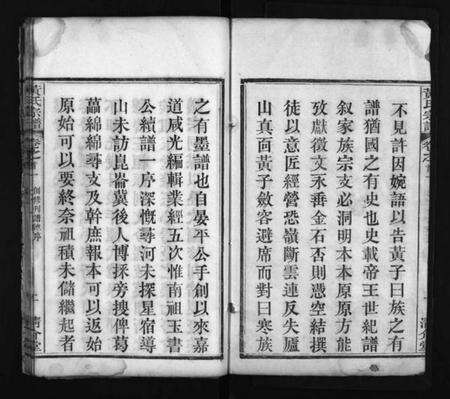 不見許因婉語以告黃子曰族之有
譜猶國之有史也史載帝王世紀譜
叙家族宗支必洞明本本原原方能
攷獻徵文永垂金石否則憑空結撰
徒以意匠經營恐嶺斷雲連反失廬
山真面黃子斂容避席而對曰寒族
黃氏宗譜
之有墨譜也自晏平公手創以來嘉
道咸光編輯業經五次惟南祖玉書
公續譜一序深慨尋河未探星宿導
山未訪崑崙冀後人博採旁搜俾葛
藟綿綿尋支及幹庶報本可以返始
原始可以要終奈祖積未儲繼起者
黃氏宗譜